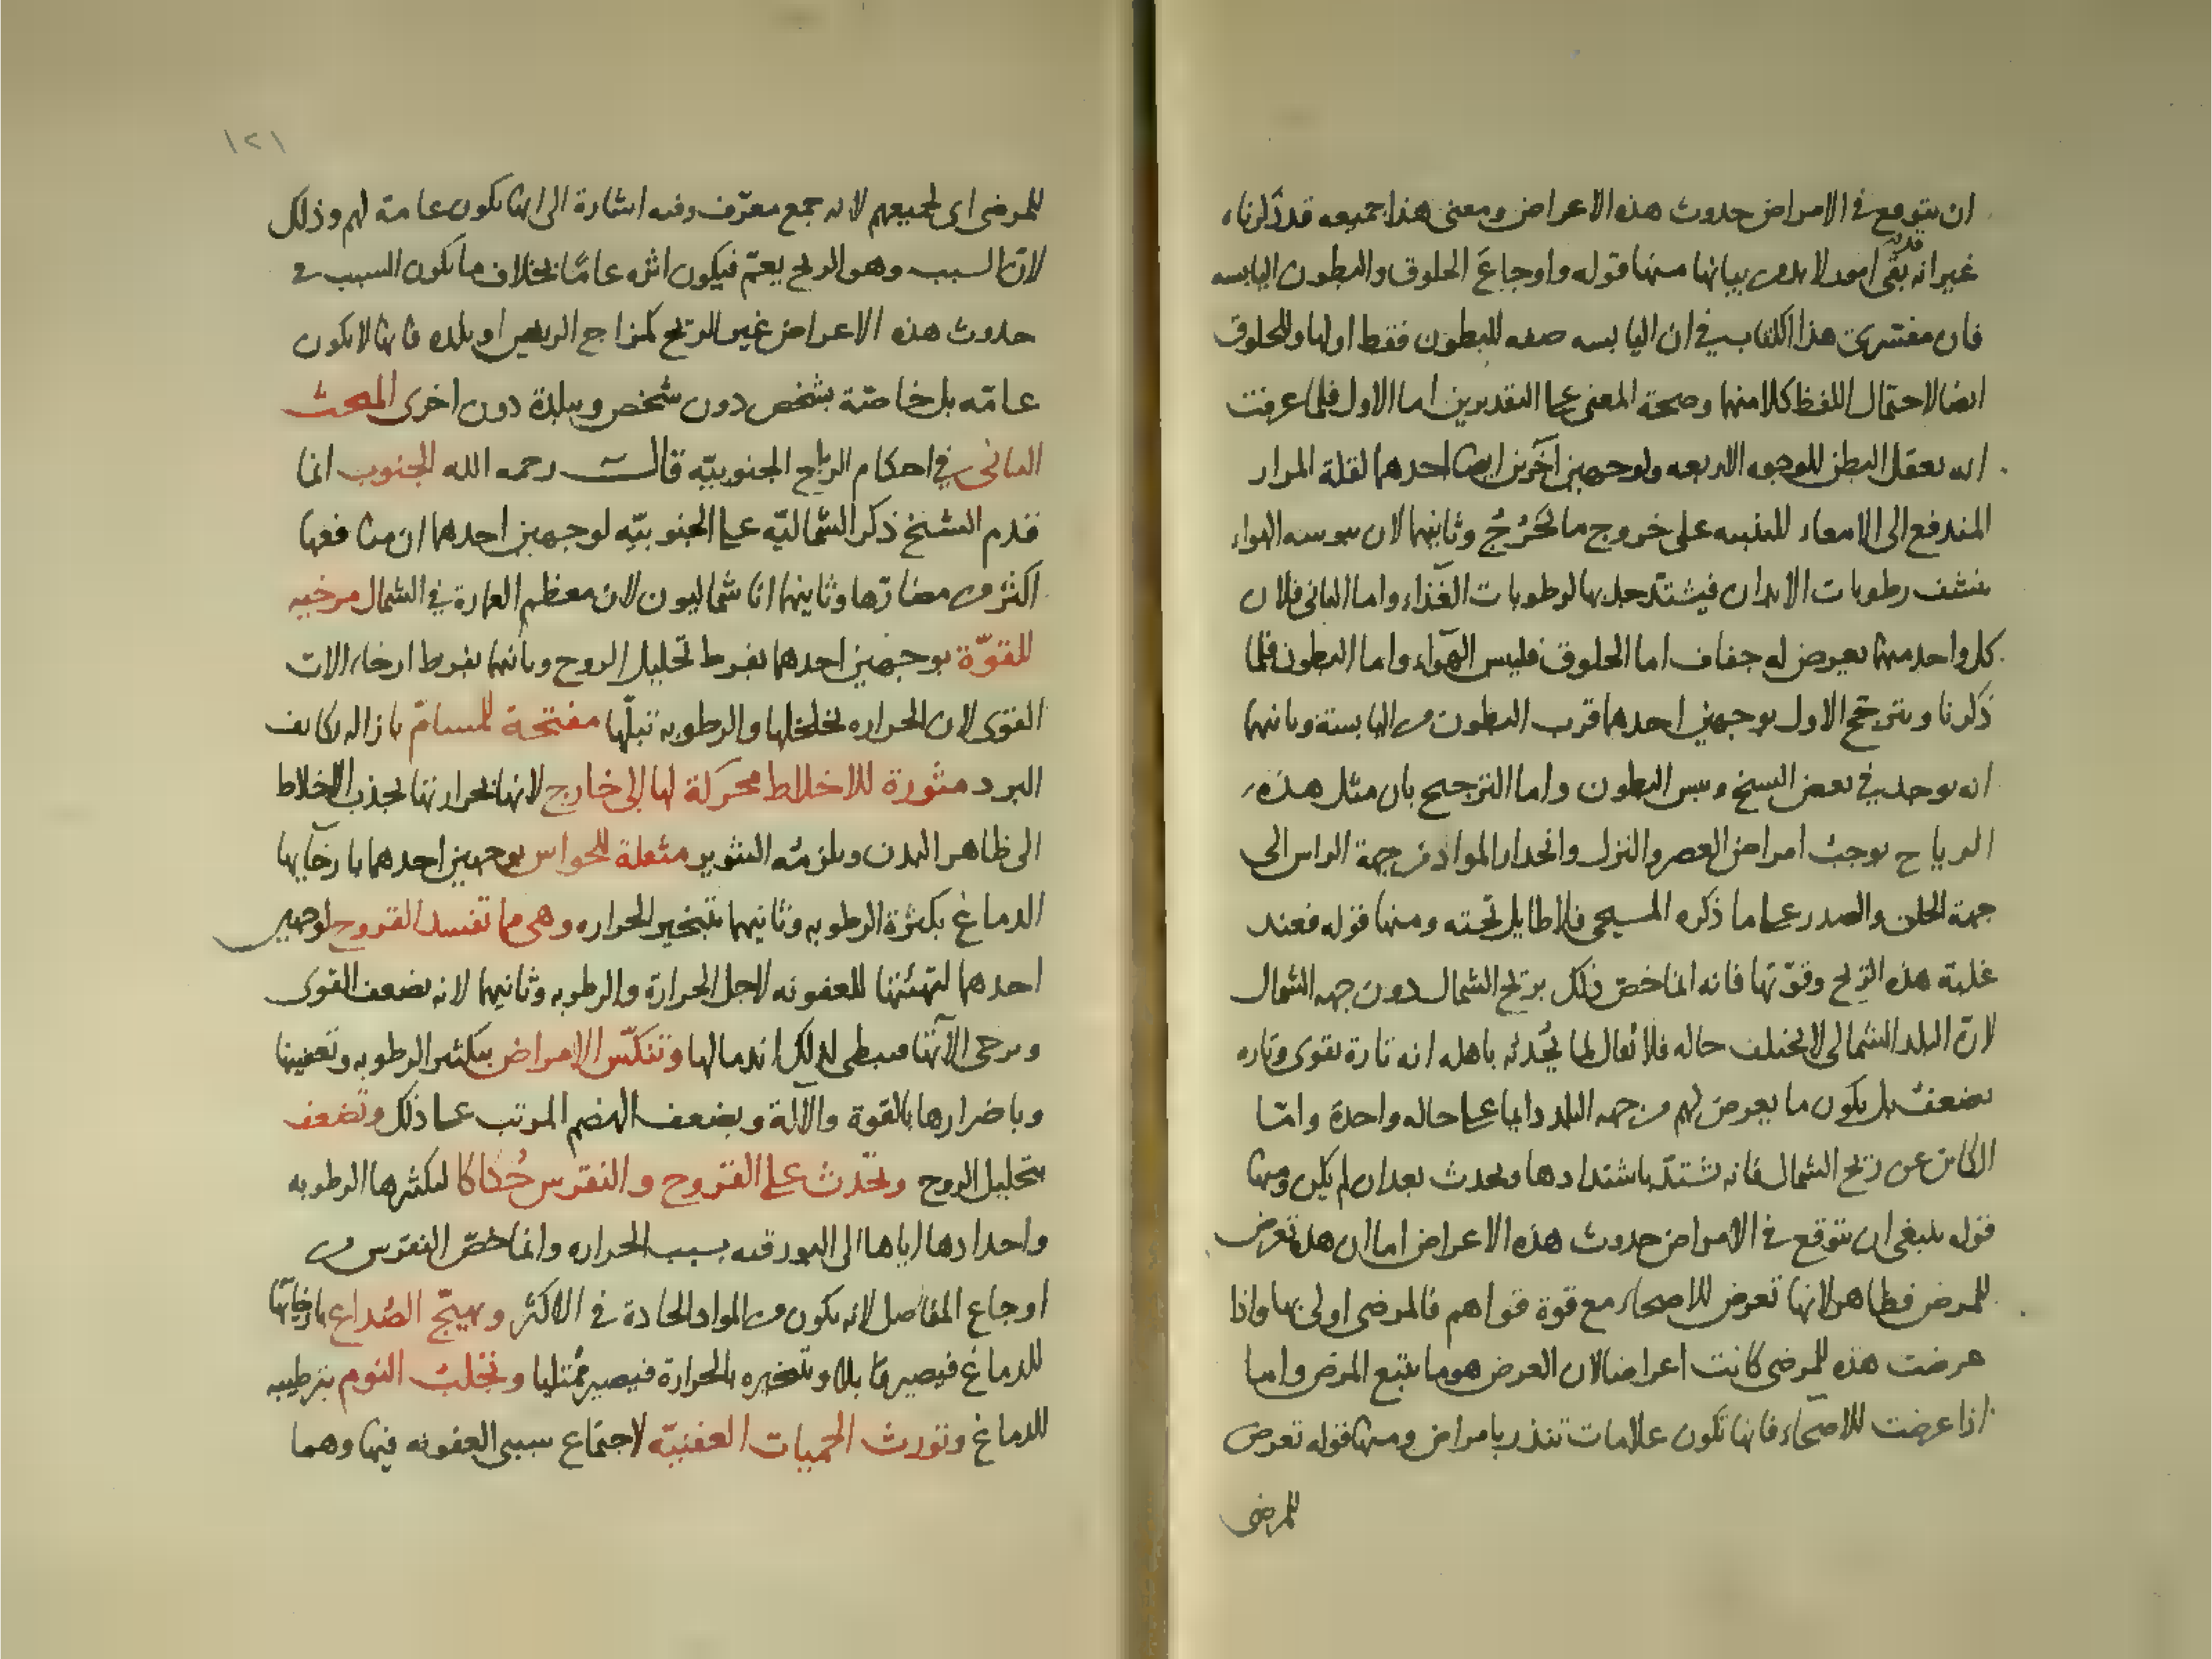 ان يتوقع في الامراض حدوث هذه الاعراض ومعنى هذا جميعه قد ذكرناه
غير انه قد بقى امور لا بد من بيانها منها قوله واوجاع الحلوق والبطون اليابسه
فان مفسرى هذا الكتاب في ان اليابسه صفه للبطون فقط او لها وللحلوق
ايضا لاحتمال اللفظ كلا منهما وصحة المعنى على التقديرين اما الاول فلما عرفت
انه يعقل البطن للوجوه الاربعه ولوجهين آخرين ايضا احدهما لقلة المرار
المندفع الى الامعاء للتنبيه على خروج ما يخرج وثانيهما لان يبوسه الهواء
ينشف رطوبات الابدان فيشتد جذبها لرطوبات الغذاء واما الثانى فلان
كل واحد منهما يعرض له جفاف اما الحلوق فليبس الهوآء واما البطون فلما
ذكرنا ويترجح الاول بوجهين احدهما قرب البطون من اليابسة وثانيهما
انه يوجد في بعض النسخ ويبس البطون واما الترجيح بان مثل هذه
الرياح يوجب امراض العصر والنزل وانحدار المواد من جهة الراس الى
جهة الحلق والصدر على ما ذكره المسيحى فلا طايل تحته ومنها قوله فعند
غلبة هذه الريح وقوتها فانه انما خص ذلك بريح الشمال دون جهه الشمال
لان البلد الشمالى لا يختلف حاله فلا يقال لما يحدثه باهله انه تارة يقوى وتاره
يضعف بل يكون ما يعرض لهم من جهه البلد دايما على حاله واحدة واما
الكاين عن ريح الشمال فانه تشتد باشتدادها ويحدث بعد ان لم يكن ومنها
قوله ينبغى ان يتوقع في الامراض حدوث هذه الاعراض اما ان هذه تعرض
للمرضى فظاهر لانها تعرض للاصحاء مع قوة قواهم فالمرضى اولى بها واذا
عرضت هذه للمرضى كانت اعراضا لان العرض هو ما يتبع المرض واما
اذا عرضت للاصحاء فانها تكون علامات تنذر بامراض ومنها قوله تعرض
للمرضى
١٢١
للمرضى اى لجميعهم لانه جمع معرف وفيه اشارة الى انها تكون عامة لهم وذلك
لان السبب وهو الريح يعم فيكون اثره عاما بخلاف ما يكون السبب في
حدوث هذه الاعراض غير الريح كمزاج المريض او بلده فانها لا يكون
عامه بل خاصة بشخص دون شخص وببلدة دون اخرى المبحث
الثانى في احكام الرياح الجنوبيه قال رحمه الله الجنوب انما
قدم الشيخ ذكر الشماليه على الجنوبيه لوجهين احدهما ان منافعها
اكثر من مضارها وثانيهما انا شماليون لان معظم العمارة في الشمال مرخيه
للقوة بوجهين احدهما بفرط تحليل الروح وثانيهما بفرط ارخاء الات
القوى لان الحراره تخلخلها والرطوبه تبلها مفتحة للمسام بازاله تكاثف
البرد مثورة للاخلاط محركة لها الى خارج لانها بحرارتها تجذب الاخلاط
الى ظاهر البدن ويلزمه التثوير مثقلة للحواس بوجهين احدهما بارخآيها
الدماغ بكثرة الرطوبه وثانيهما بتبخير الحراره وهى مما تفسد القروح لوجهين
احدهما لتهيئتها للعفونه لاجل الحرارة والرطوبه وثانيهما لانه يضعف القوى
ويرخى الآتها فيبطى لذلك اندمالها وتنكس الامراض بتكثير الرطوبه وتعفينها
وباضرارها بالقوة والآلة ويضعف الهضم المرتب على ذلك وتضعف
بتحليل الروح وتحدث على القروح والنقرس حكاكا لتكثيرها الرطوبه
واحدادها اياها الى البورقيه بسبب الحراره وانما خص النقرس من
اوجاع المفاصل لانه يكون من المواد الحادة في الاكثر ويهيج الصداع بارخائها
للدماغ فيصير قابلا وتبخيره بالحرارة فيصير ممتليا وتجلب النوم بترطيبه
للدماغ وتورث الحميات العفنيه لاجتماع سببى العفونه فيها وهما